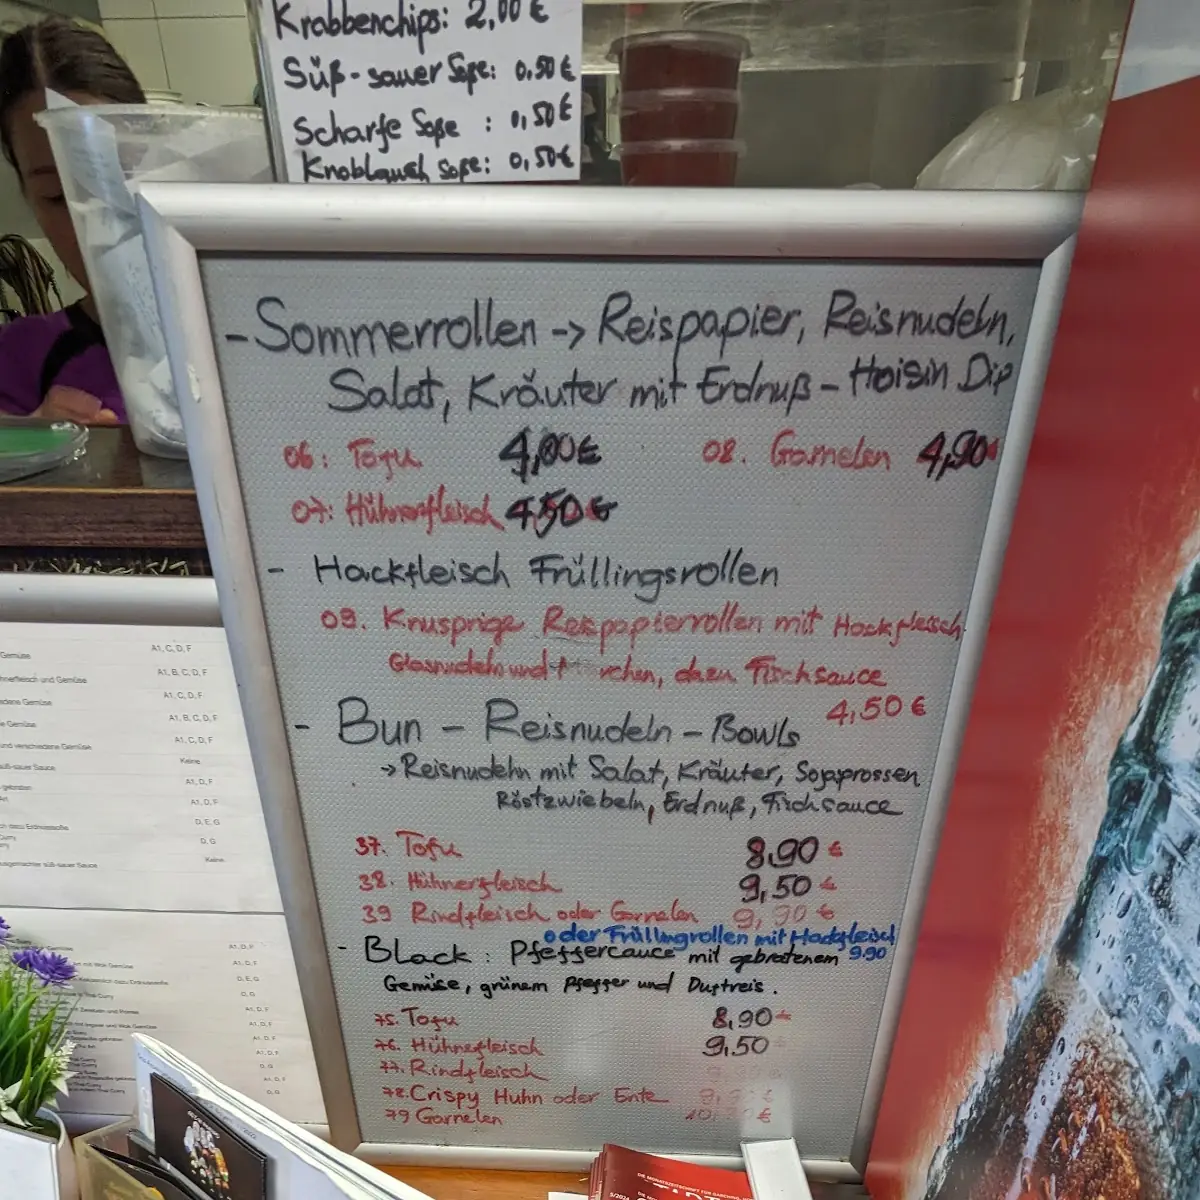 Krabbenchips: 2,00 €
Süß-sauer Soße: 0,50 €
Scharfe Soße : 0,50 €
Knoblauch Soße: 0,50 €
- Sommerrollen -> Reispapier, Reisnudeln,
Salat, Kräuter mit Erdnuß - Hoisin Dip
06: Tofu 4,00 € 08. Garnelen 4,90
07: Hühnerfleisch 4,50 €
- Hackfleisch Früllingsrollen
09. Knusprige Reispapierrollen mit Hackfleisch
Glasnudeln und dazu Fischsauce
4,50 €
- Bun - Reisnudeln - Bowls
-> Reisnudeln mit Salat, Kräuter, Sojasprossen
Röstzwiebeln, Erdnuß, Fischsauce
37. Tofu 8,90 €
38. Hühnerfleisch 9,50 €
39 Rindfleisch oder Garnelen 9,90 €
oder Früllingrollen mit Hackfleisch
- Black : Pfeffercauce mit gebratenem 9.90
Gemüse, grünem Pfeffer und Duftreis.
75. Tofu 8,90 €
76. Hühnefleisch 9,50
77. Rindfleisch
78. Crispy Huhn oder Ente
79 Garnelen
Gemüse A1, C, D, F
hnerfleisch und Gemüse A1, B, C, D, F
edene Gemüse A1, C, D, F
e Gemüse A1, B, C, D, F
und verschiedene Gemüse A1, C, D, F
süß-sauer Sauce Keine
gebraten A1, D, F
Art A1, D, F
D, E, G
Curry D, G
ausgemachter süß-sauer Sauce Keine